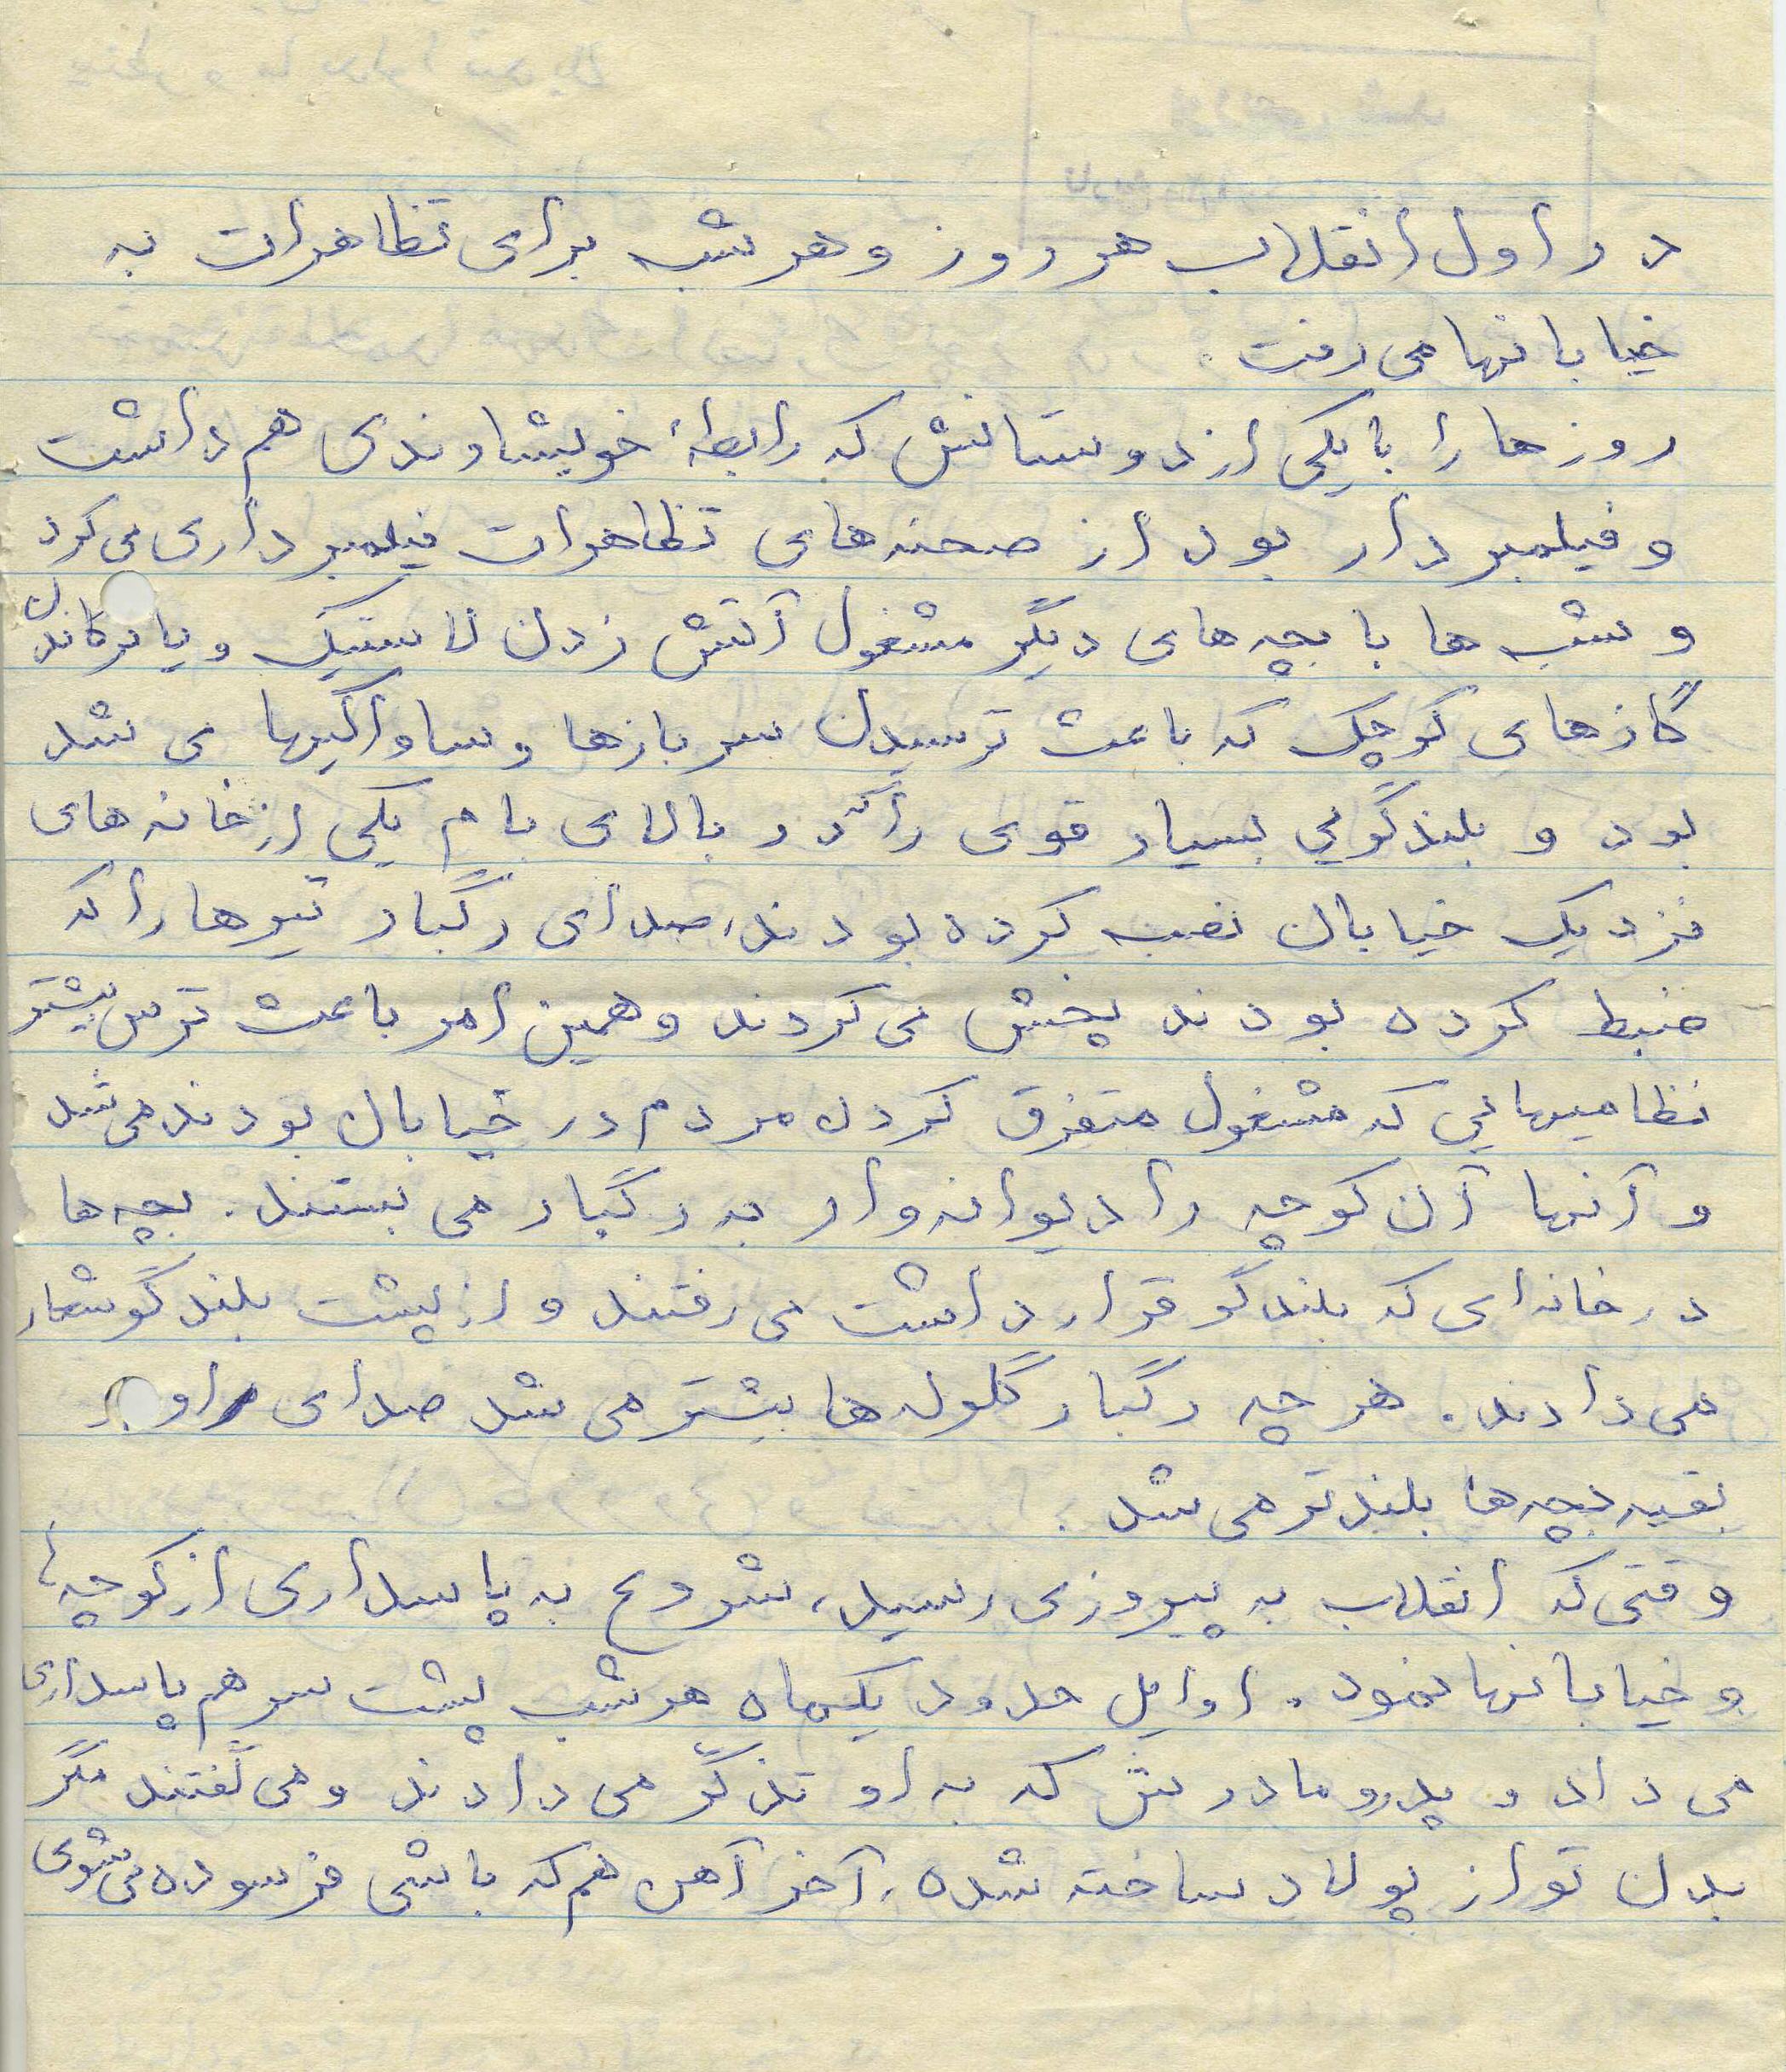 در اول انقلاب هر روز و هر شب برای تظاهرات به
خیابانها می رفت .
روزها را با یکی از دوستانش که رابطهٔ خویشاوندی هم داشت
و فیلمبردار بود از صحنه های تظاهرات فیلمبرداری می کرد
و شب ها با بچه های دیگر مشغول آتش زدن لاستیک و یا ترکاندن
گازهای کوچک که باعث ترسیدن سربازها و ساواکیها می شد
بود و بلندگویی بسیار قوی را که در بالای بام یکی از خانه های
نزدیک خیابان نصب کرده بودند، صدای رگبار تیرها را که
ضبط کرده بودند پخش می کردند و همین امر باعث ترس بیشتر
نظامیهایی که مشغول متفرق کردن مردم در خیابان بودند می شد
و آنها آن کوچه را دیوانه وار به رگبار می بستند . بچه ها
در خانه ای که بلندگو قرار داشت می رفتند و از پشت بلندگو شعار
می دادند . هر چه رگبار گلوله ها بیشتر می شد صدای او و
بقیه بچه ها بلندتر می شد .
وقتی که انقلاب به پیروزی رسید، شروع به پاسداری از کوچه ها
و خیابانها نمود . اوایل حدود یکماه هر شب پشت سر هم پاسداری
می داد و پدر و مادرش که به او تذکر می دادند و می گفتند مگر
بدن تو از پولاد ساخته شده ، آخر آهن هم که باشی فرسوده می شوی